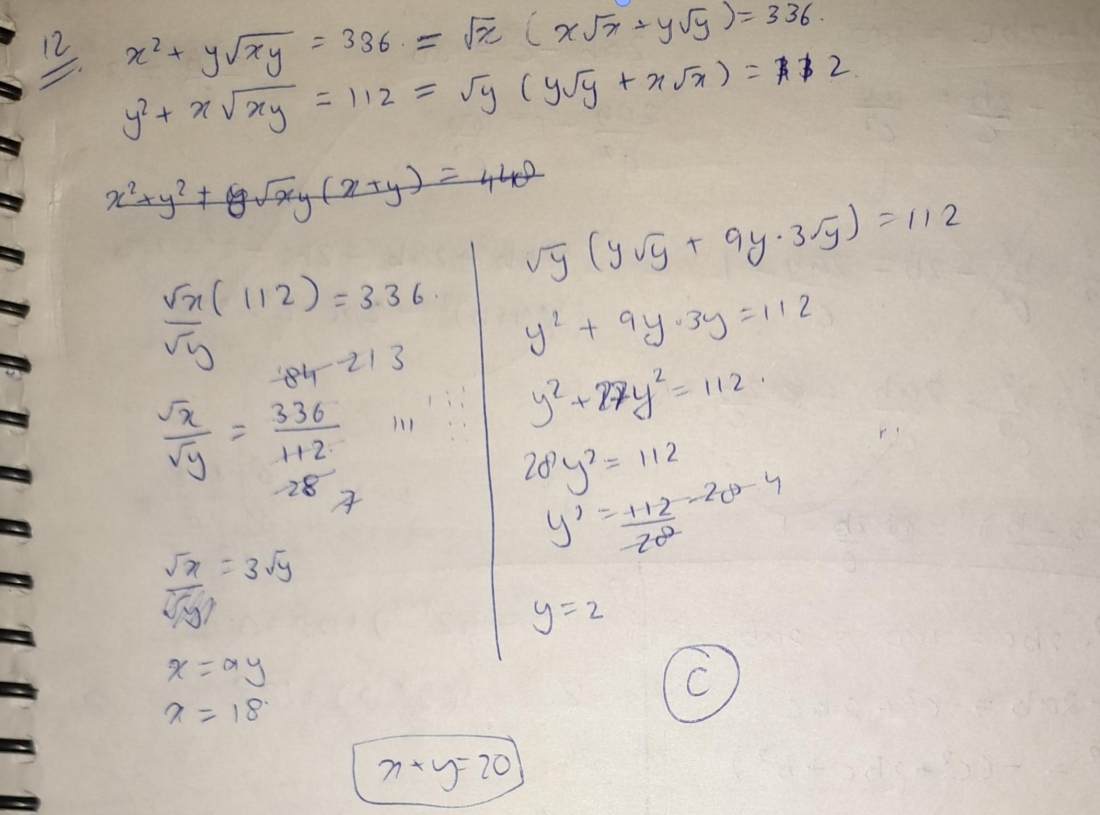 12. x² + y√xy = 336 = √x (x√x + y√y) = 336.
y² + x√xy = 112 = √y (y√y + x√x) = 112.
x² + y² + √xy (x + y) = 448
√x/√y (112) = 336.
84 21 3
√x/√y = 336/112
28 7
√x = 3√y
√y
x = 9y
x = 18
√y (y√y + 9y · 3√y) = 112
y² + 9y · 3y = 112
y² + 27y² = 112
28y² = 112
y² = 112/28 28 4
y = 2
C
x + y = 20